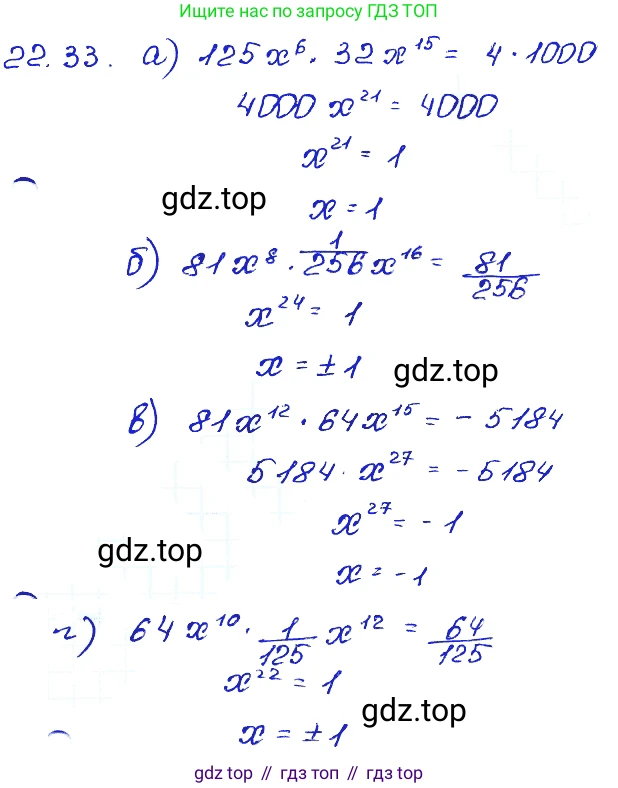 Ищите нас по запросу ГДЗ ТОП
22.33. а) 125x⁶ · 32x¹⁵ = 4 · 1000
4000 x²¹ = 4000
x²¹ = 1
gdz.top
x = 1
б) 81x⁸ · 1/256 x¹⁶ = 81/256
x²⁴ = 1
x = ±1
gdz.top
в) 81x¹² · 64x¹⁵ = - 5184
5184 · x²⁷ = - 5184
x²⁷ = - 1
gdz.top
x = - 1
г) 64x¹⁰ · 1/125 x¹² = 64/125
x²² = 1
gdz.top
x = ±1
gdz top // гдз топ // гдз.топ